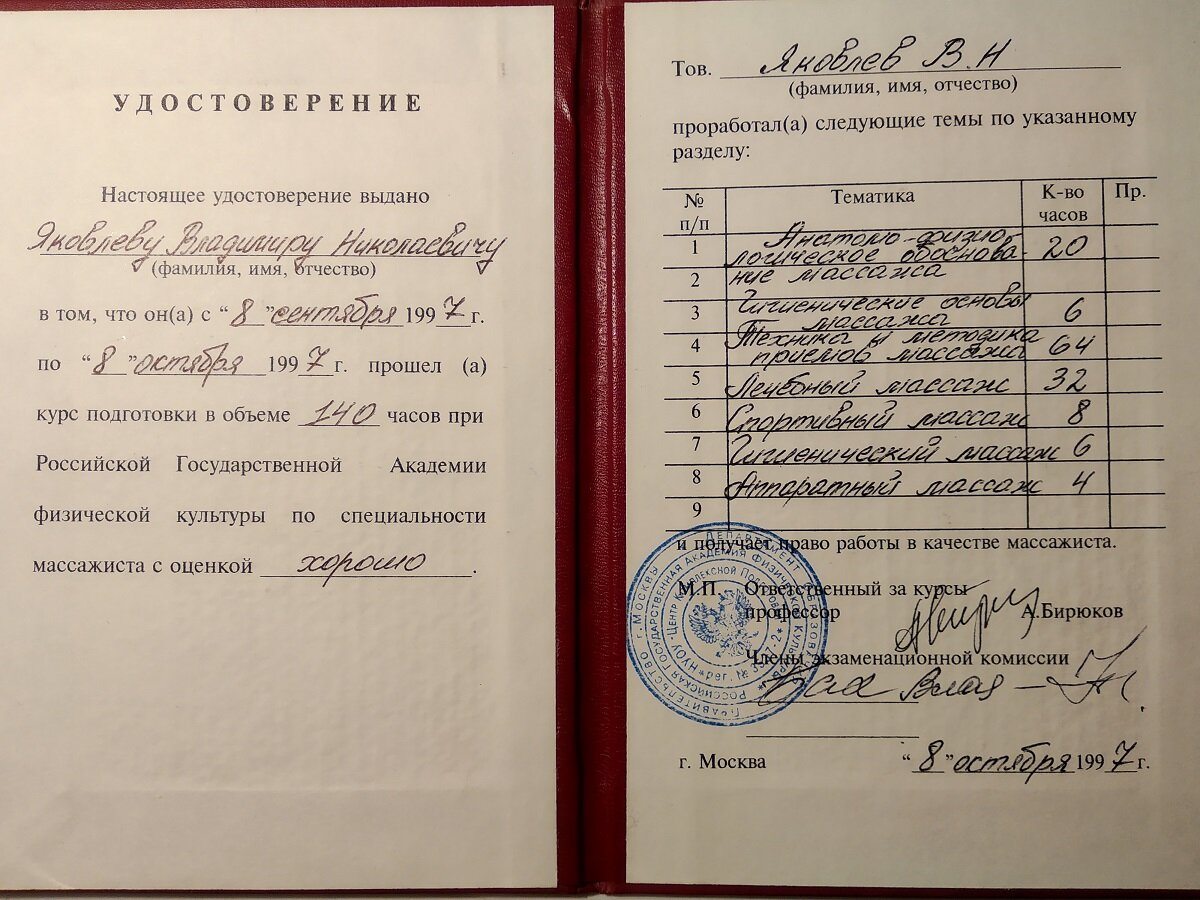 УДОСТОВЕРЕНИЕ
Настоящее удостоверение выдано
Яковлеву Владимиру Николаевичу
(фамилия, имя, отчество)
в том, что он(а) с “8”сентября 1997г.
по “8”октября 1997г. прошел (а)
курс подготовки в объеме 140 часов при
Российской Государственной Академии
физической культуры по специальности
массажиста с оценкой хорошо.
Тов. Яковлев В.Н
(фамилия, имя, отчество)
проработал(а) следующие темы по указанному
разделу:
№ п/п Тематика К-во часов Пр.
1 Анатомо-физио-
логическое обоснова- 20
2 ние массажа
3 Гигиенические основы
массажа 6
4 Техника и методика
приемов массажа 64
5 Лечебный массаж 32
6 Спортивный массаж 8
7 Гигиенический массаж 6
8 Аппаратный массаж 4
9
и получает право работы в качестве массажиста.
М.П. Ответственный за курсы
профессор А.Бирюков
Члены экзаменационной комиссии
г. Москва “8”октября 1997г.
ПРАВИТЕЛЬСТВО г. МОСКВЫ ДЕПАРТАМЕНТ ОБРАЗОВАНИЯ
РОССИЙСКАЯ ГОСУДАРСТВЕННАЯ АКАДЕМИЯ ФИЗИЧЕСКОЙ КУЛЬТУРЫ